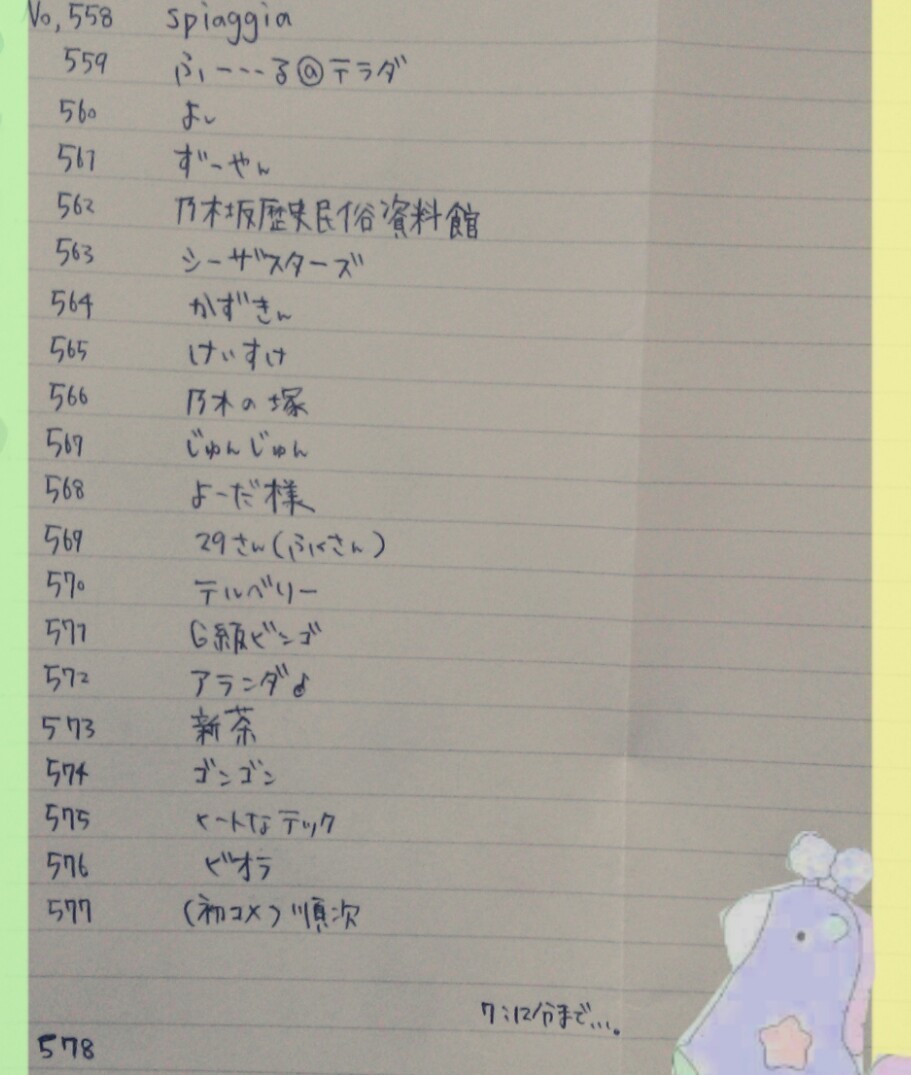 No, 558 spiaggia
559 ふー---る@テラダ
560 よし
561 ずーやん
562 乃木坂歴史民俗資料館
563 シーザスターズ
564 かずきん
565 けいすけ
566 乃木の塚
567 じゅんじゅん
568 よーだ様
569 29さん(ふくさん)
570 テルベリー
571 G級ビンゴ
572 アランダ♪
573 新茶
574 ゴンゴン
575 ヒートなテック
576 ビオラ
577 (初コメ)順次
7:12分まで...。
578